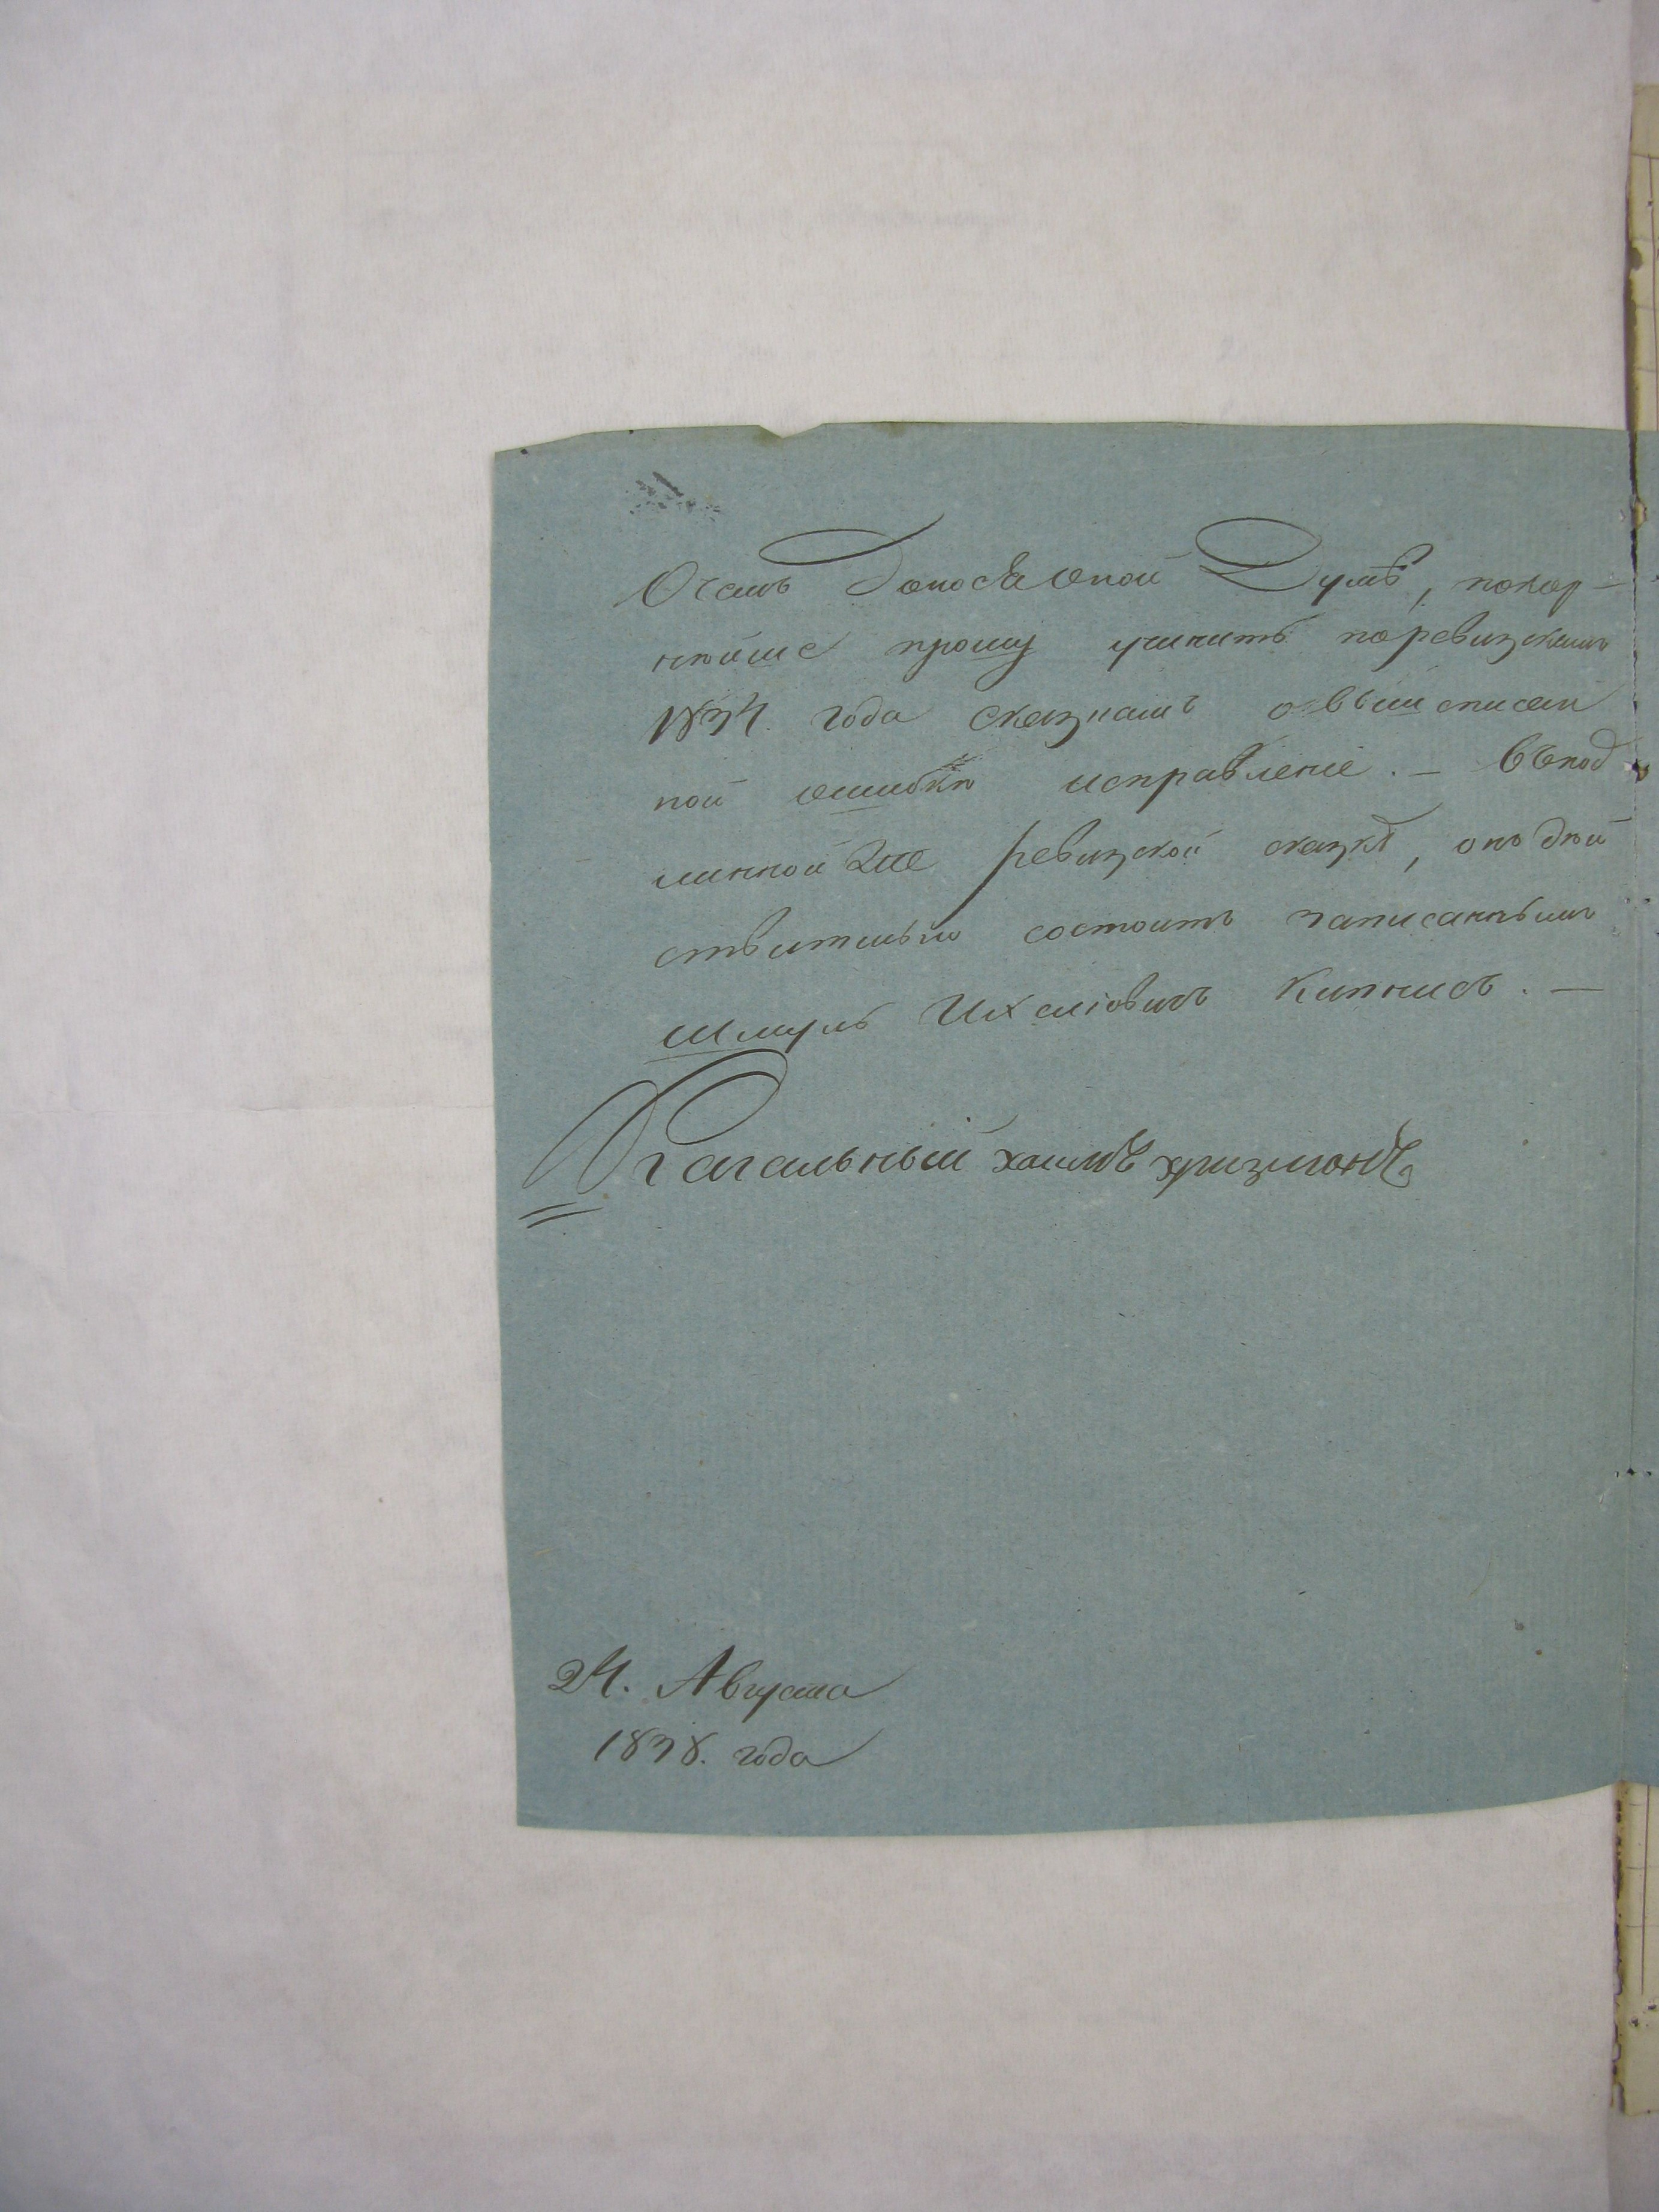 О семъ донося оной Думѣ, покор-
нѣйше прошу учинить поревизскимъ
1834. года сказкамъ овышписан
ной ошибкѣ исправленіе. — Въпод
линной же ревизской сказкѣ, онъ дѣй
ствительно состоитъ записаннымъ
Шмуль Ихелювичъ Кипнисъ. —
Кагальный хаимъ хризманъ
24. Августа
1838. года